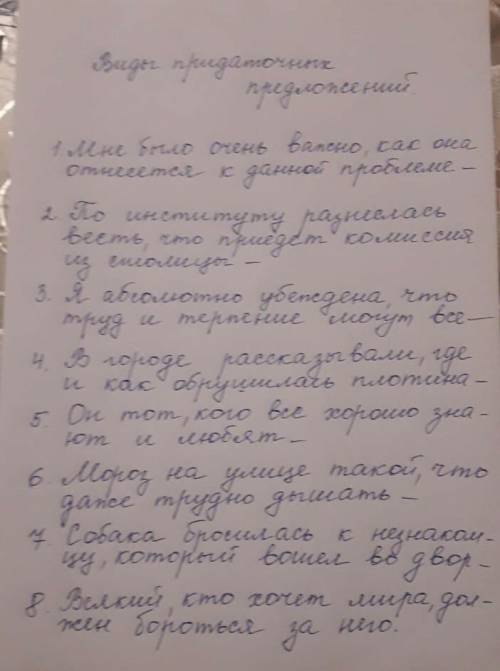 Виды придаточных
предложений.
1. Мне было очень важно, как она
отнесется к данной проблеме –
2. По институту разнеслась
весть, что приедет комиссия
из столицы –
3. Я абсолютно убеждена, что
труд и терпение могут все –
4. В городе рассказывали, где
и как обрушилась плотина –
5. Он тот, кого все хорошо зна-
ют и любят –
6. Мороз на улице такой, что
даже трудно дышать –
7. Собака бросилась к незнаком-
цу, который вошел во двор –
8. Всякий, кто хочет мира, дол-
жен бороться за него.